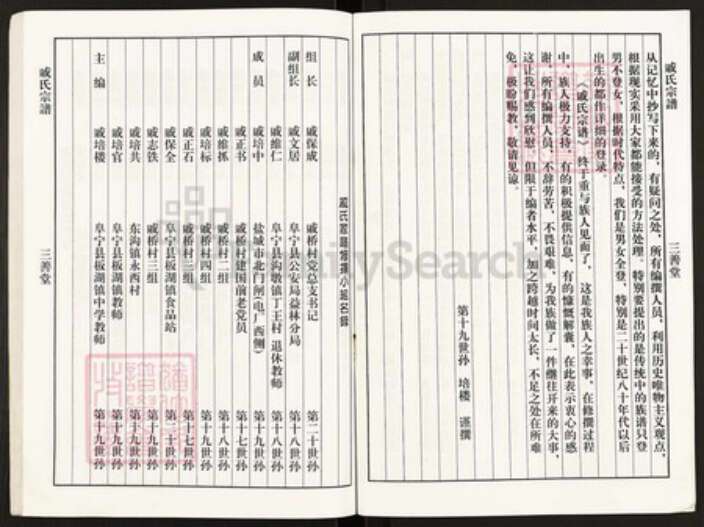 戚氏宗譜
三善堂
从记忆中抄写下来的，有疑问之处，所有编撰人员，利用历史唯物主义观点，
根据现实采用大家都能接受的方法处理。特别要提出的是传统中的族谱只登
男不登女，根据时代特点，我们是男女全登，特别是二十世纪八十年代以后
出生的都作详细的登录。
《戚氏宗谱》终于重与族人见面了，这是我族人之幸事，在修撰过程
中，族人极力支持，有的积极提供信息，有的慷慨解囊，在此表示衷心的感
谢，所有编撰人员，不辞劳苦，不畏艰难，为我族做了一件继往开来的大事，
这让我们感到欣慰，但限于编者水平，加之跨越时间太长，不足之处在所难
免，极盼赐教，敬请见谅。
第十九世孙 培楼 谨撰
戚氏家谱修撰小组名录
组长 戚保成 戚桥村党总支书记 第二十世孙
副组长 戚文居 阜宁县公安局益林分局 第十八世孙
戚维仁 阜宁县沟墩镇丁王村 退休教师 第十八世孙
成员 戚培中 盐城市北门闸(电厂西侧) 第十九世孙
戚正书 戚桥村建国前老党员 第十七世孙
戚维抓 戚桥村二组 第十八世孙
戚培标 戚桥村四组 第十九世孙
戚正石 戚桥村三组 第十七世孙
戚保全 阜宁县板湖镇食品站 第二十世孙
戚志铁 戚桥村三组 第十九世孙
戚培共 东沟镇永西村 第十九世孙
戚培官 阜宁县板湖镇教师 第十九世孙
主编 戚培楼 阜宁县板湖镇中学教师 第十九世孙
戚氏宗譜
三善堂
FamilySearch